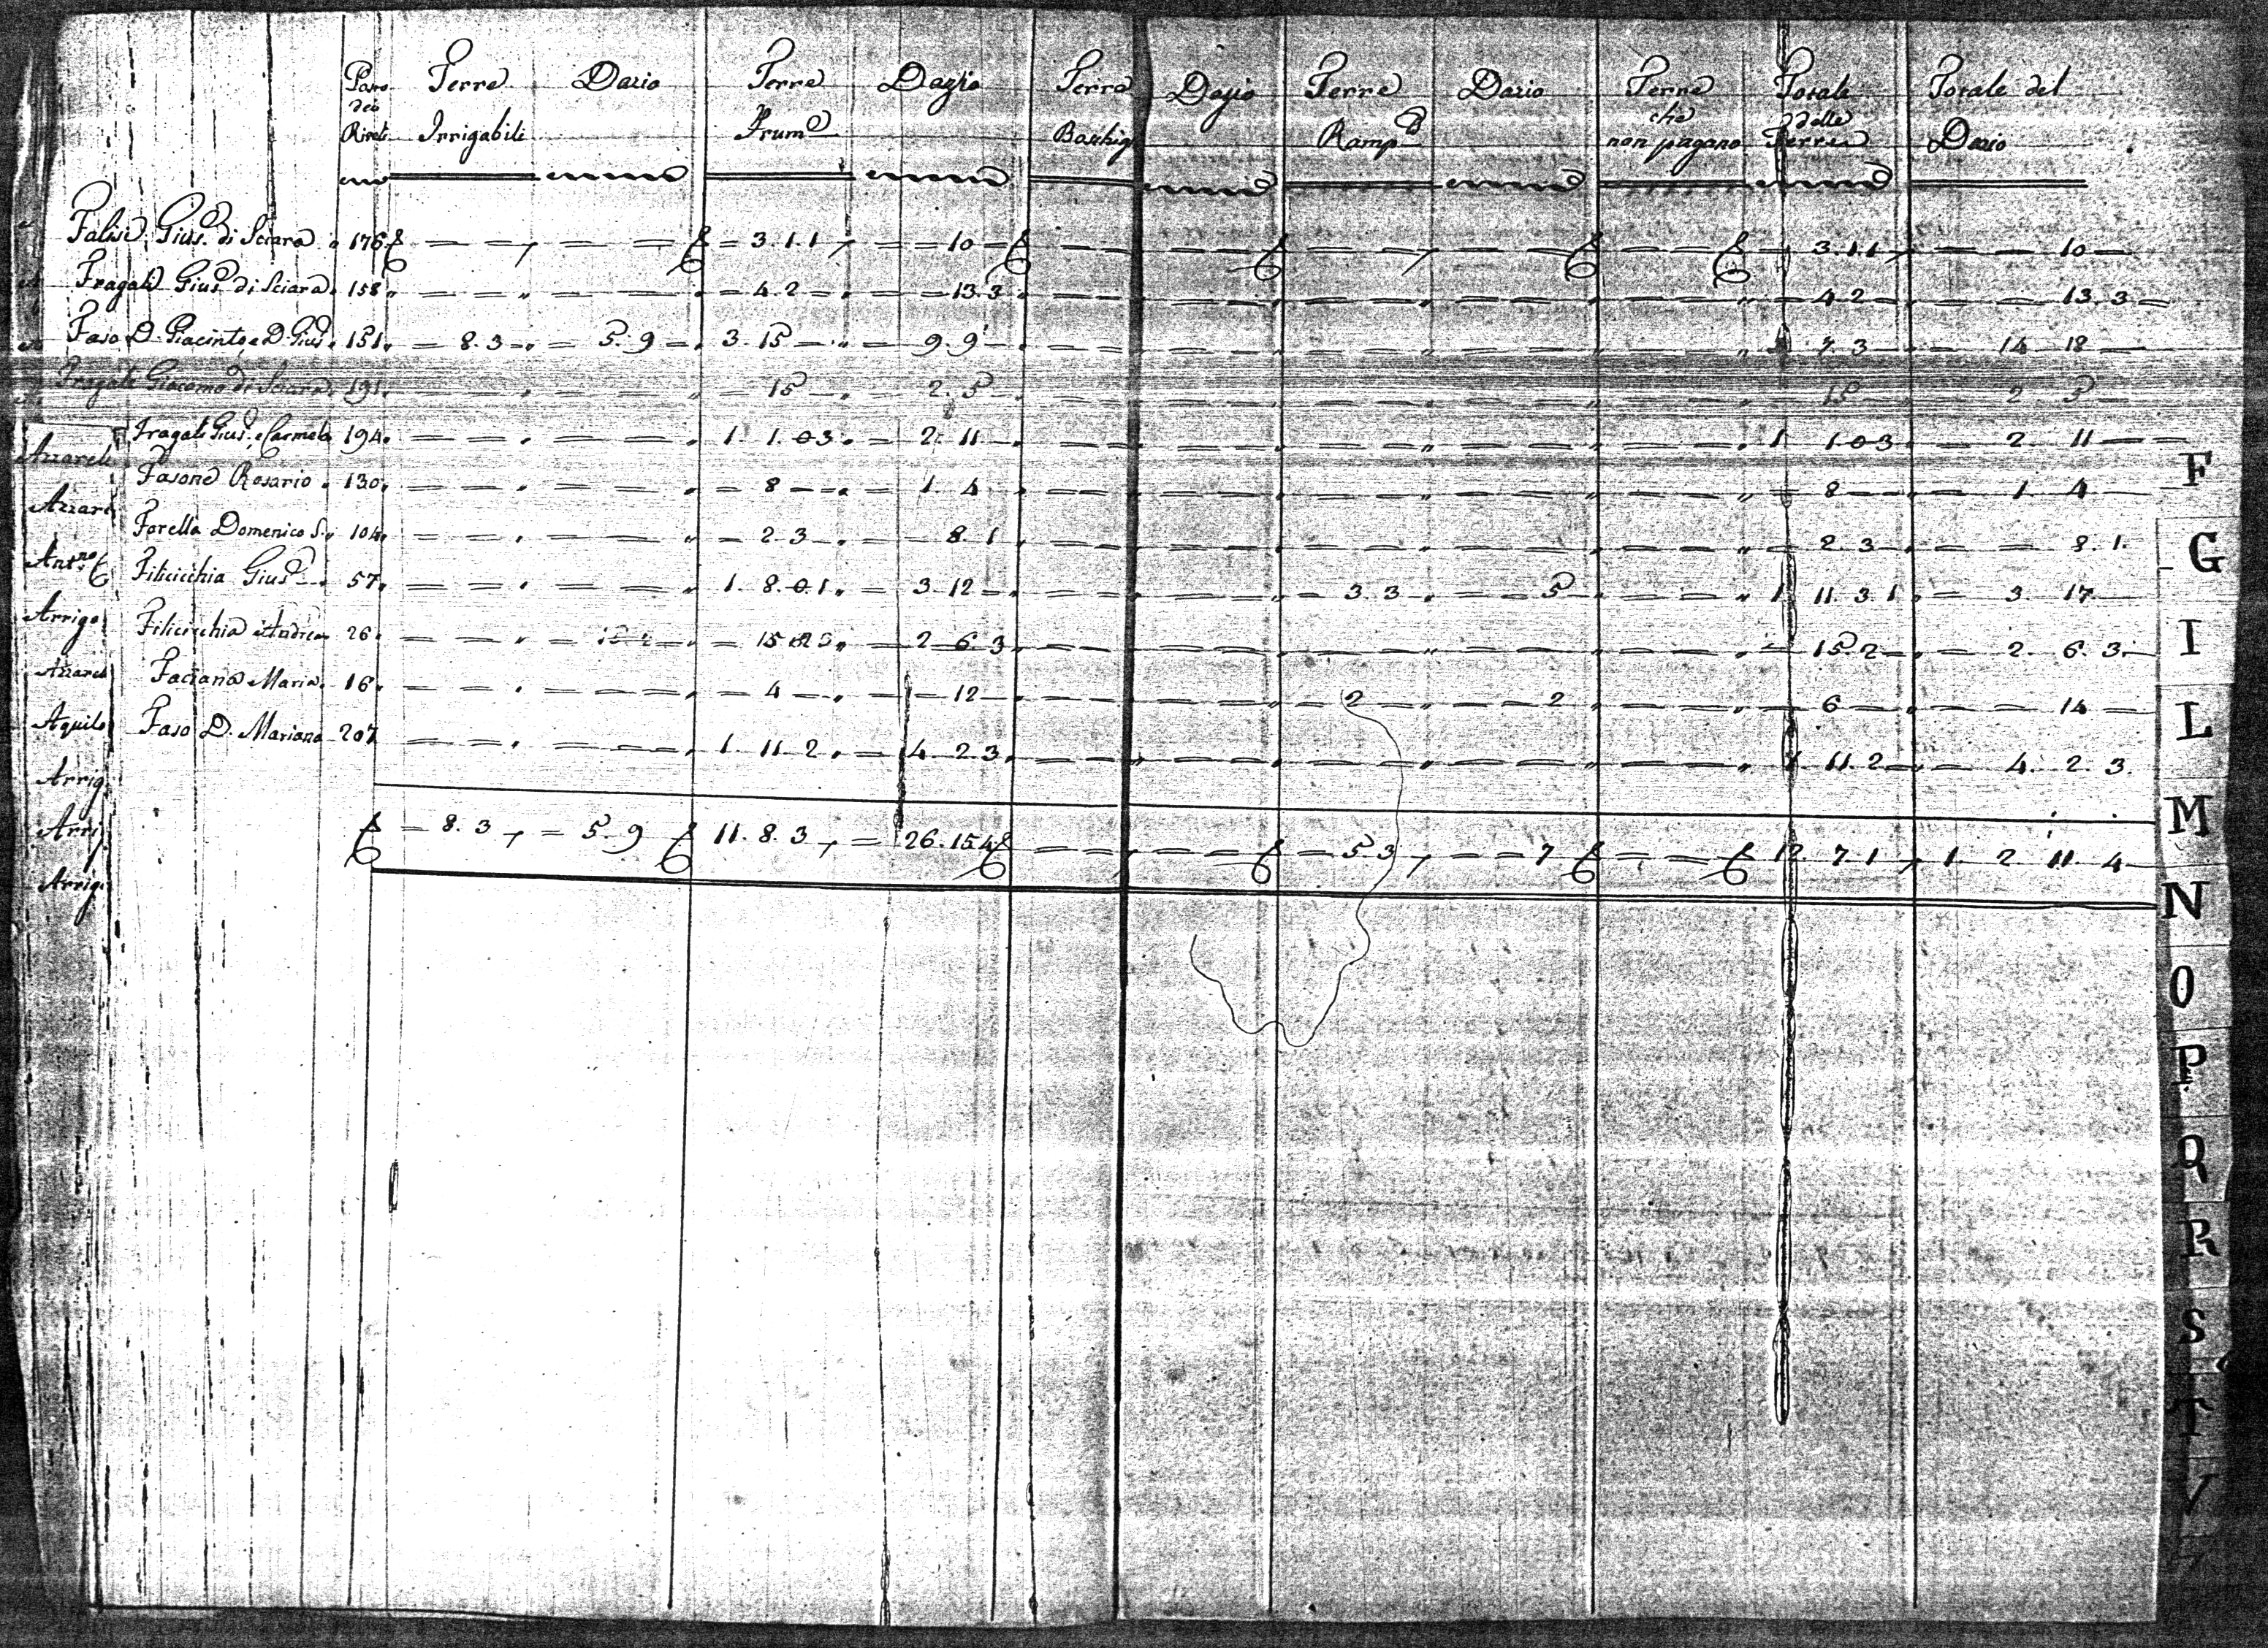 Terre Dazio Terre Dazzio Terre Dazio Terre Dazio Terre Totale Totale del
dei che delle
Riveli Irrigabili Frum.e Boschig Ramp.e non pagano Terre Dazio
Falisi Gius.e di Sciara 176 — — — — 3. 1. 1 — — 10 — — — — — — — — — — 3. 1. 1 — — 10 —
Fragali Gius.e di Sciara 158 — — — — 4. 2 — — 13. 3 — — — — — — — — — 4 2 — — — 13. 3
Faso D. Giacinto, e D. Gius.e 151 — 8. 3 — 5. 9 — 3. 15 — — 9 9 — — — — — — — — — 7. 3 — 14 18 —
Fragali Giacomo di Sciara 191 — — 15 — 2. 5 — — — — — — — — — 15 — 2 5 —
Fragali Gius.e, e Carmela 194 — — — — 1. 1. 0 3 — 2. 11 — — — — — — — — — 1 1 0 3 — 2. 11 —
Fasone Rosario 130 — — — — 8 — — 1. 4 — — — — — — — — — 8 — — 1 4 —
Forella Domenico S. 104 — — — — 2 3 — — 8. 1 — — — — — — — — — 2. 3 — — 8. 1.
Filicicchia Gius.e 57 — — — — 1. 8. 0. 1 — 3. 12 — — — — — 3 3 — — 5 — — 1 11. 3 1 — 3 17 —
Filicicchia Andrea 26 — — — 15 — 2 6 3 — — — — — — — — — 15. 2 — 2. 6. 3
Faciana Maria 16 — — — — 4 — — 12 — — — — — 2 — 2 — — 6 — — 14 —
Faso D. Mariana 207 — — — — 1. 11. 2 — 4. 2. 3 — — — — — — — — — 1 11. 2 — 4. 2. 3.
— 8. 3 — 5. 9 11. 8. 3 — 26. 15. 4 — — — — — 5 3 — — 7 — — 12. 7 1 1. 2 11. 4
Azzarel
Azzar
Ant.no
Arrigo
Azzarel
Aquilo
Arrig
Arri
Arrig
F
G
I
L
M
N
O
P
Q
R
S
T
V